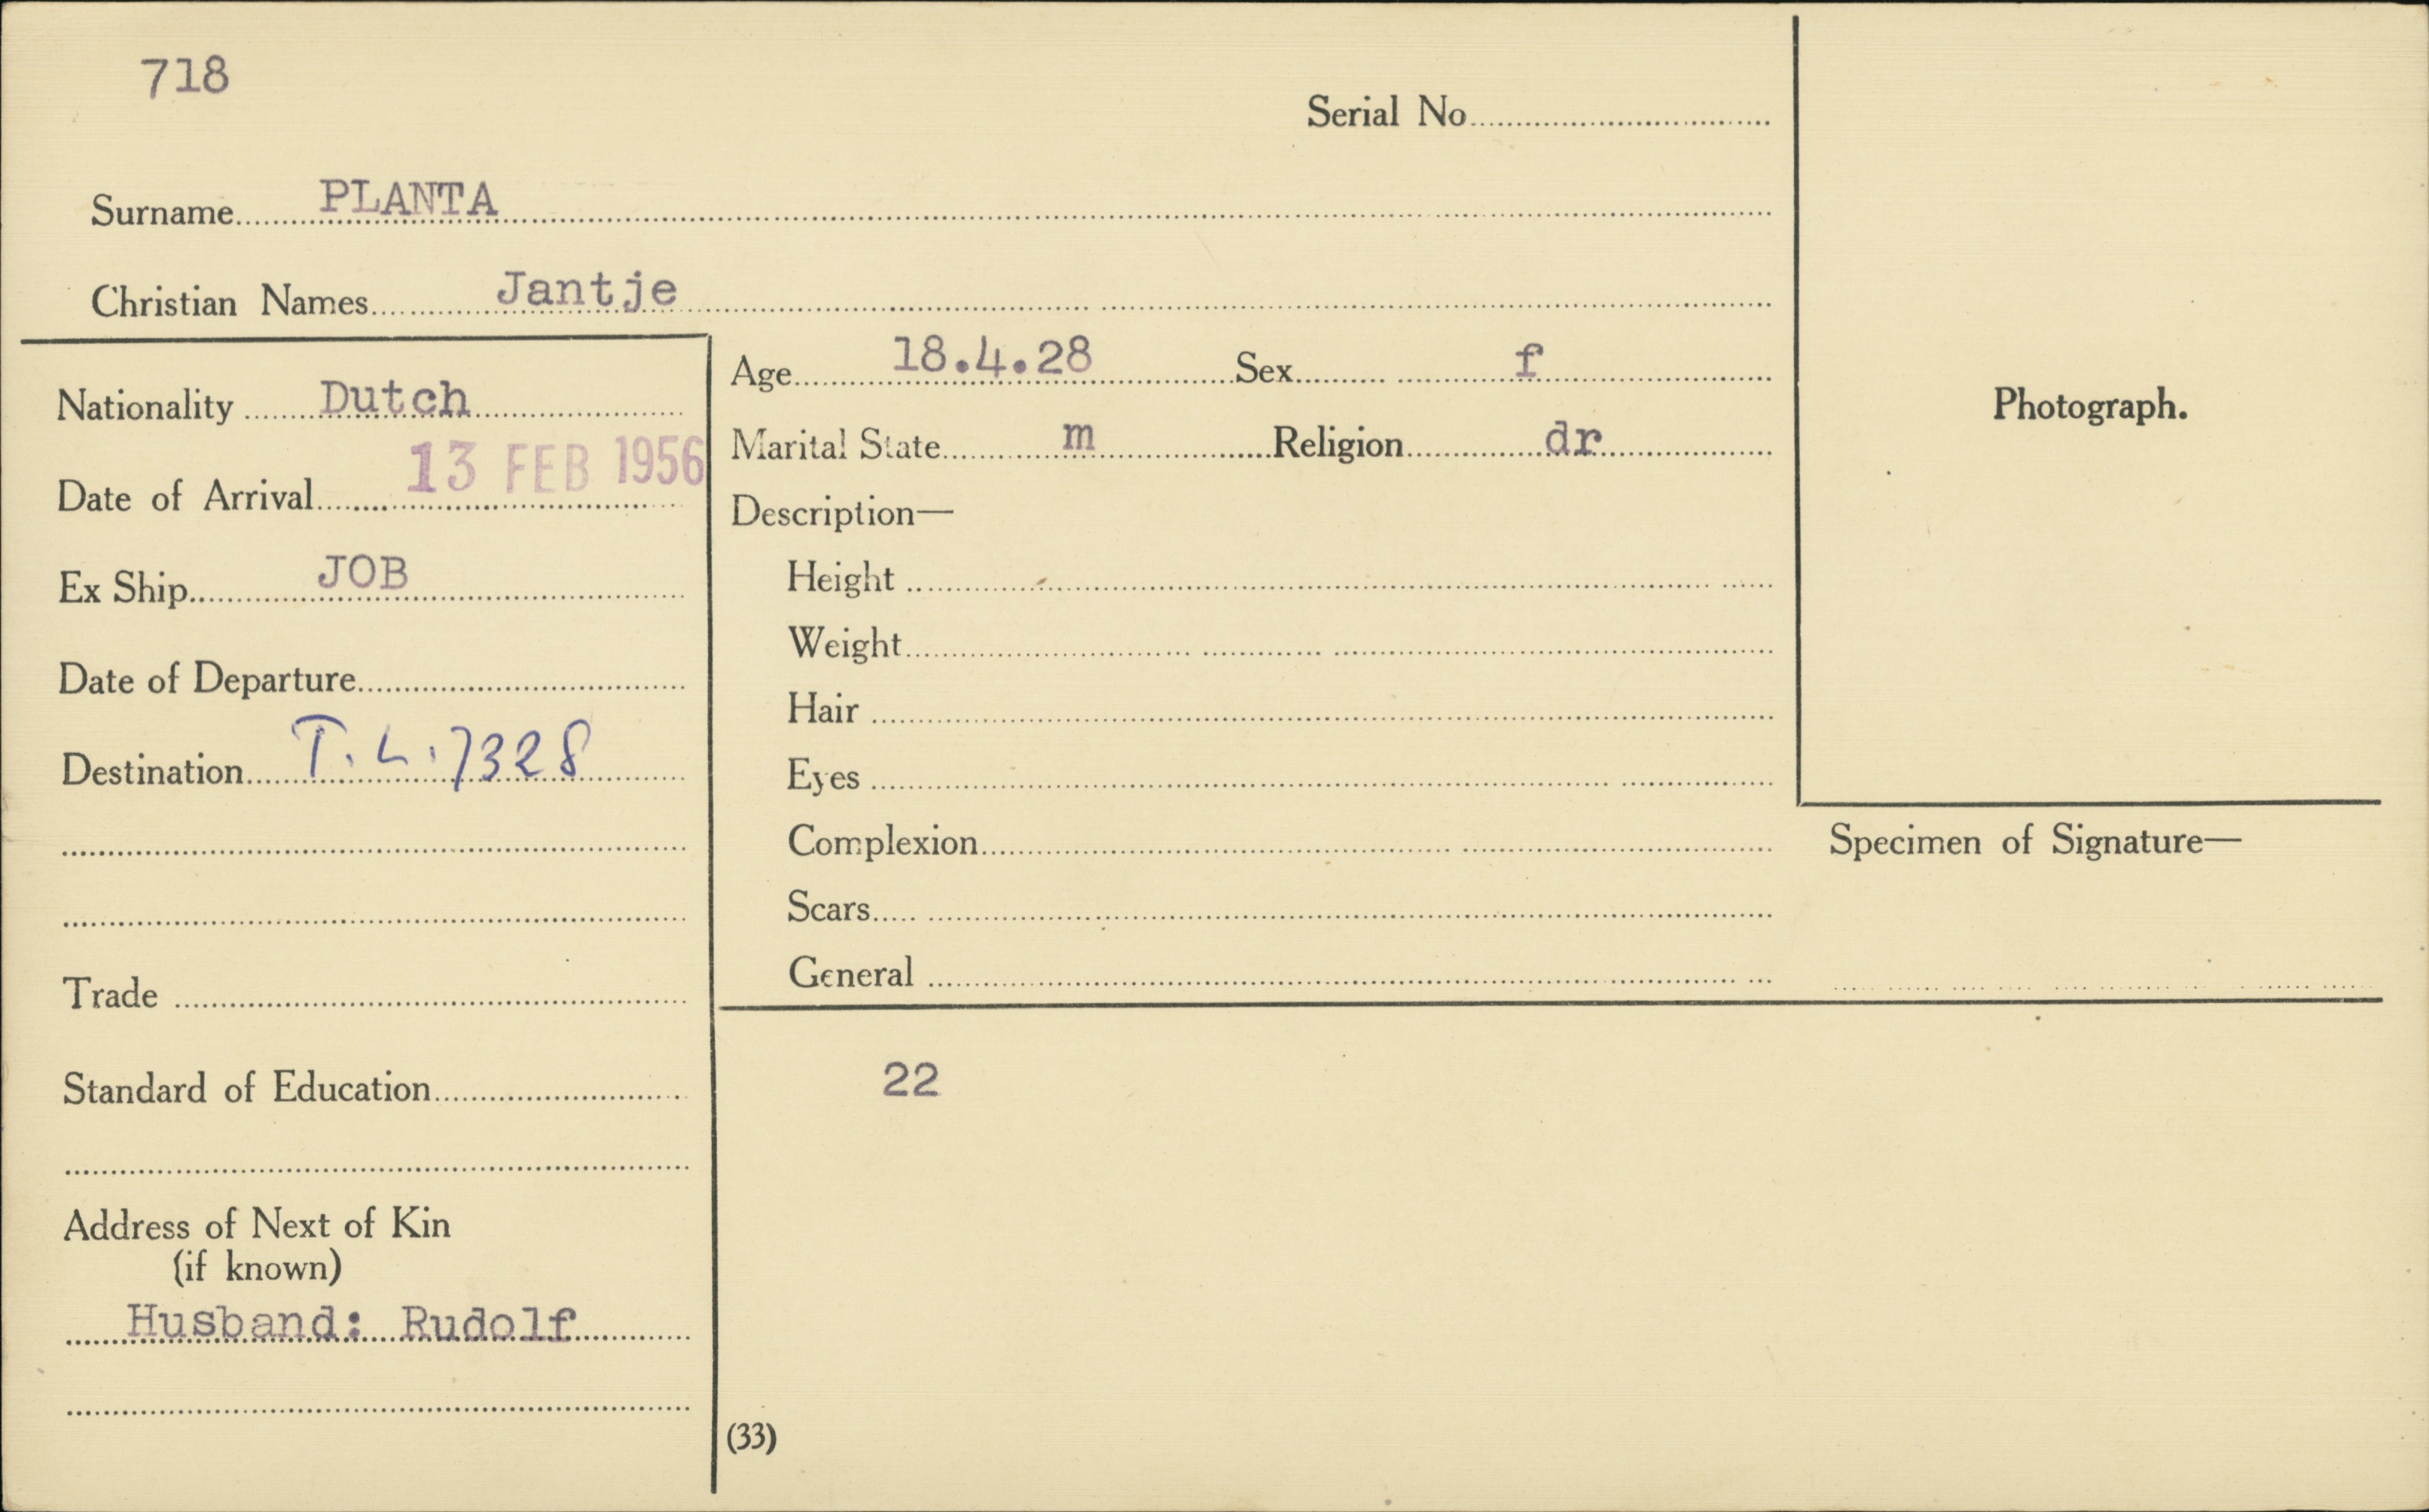 718
Serial No
Surname PLANTA
Christian Names Jantje
Nationality Dutch
Date of Arrival 13 FEB 1956
Ex Ship JOB
Date of Departure
Destination T.L.7328
Trade
Standard of Education
Address of Next of Kin
(if known)
Husband: Rudolf
Age 18.4.28 Sex f
Marital State m Religion dr
Description—
Height
Weight
Hair
Eyes
Complexion
Scars
General
22
(33)
Photograph.
Specimen of Signature—